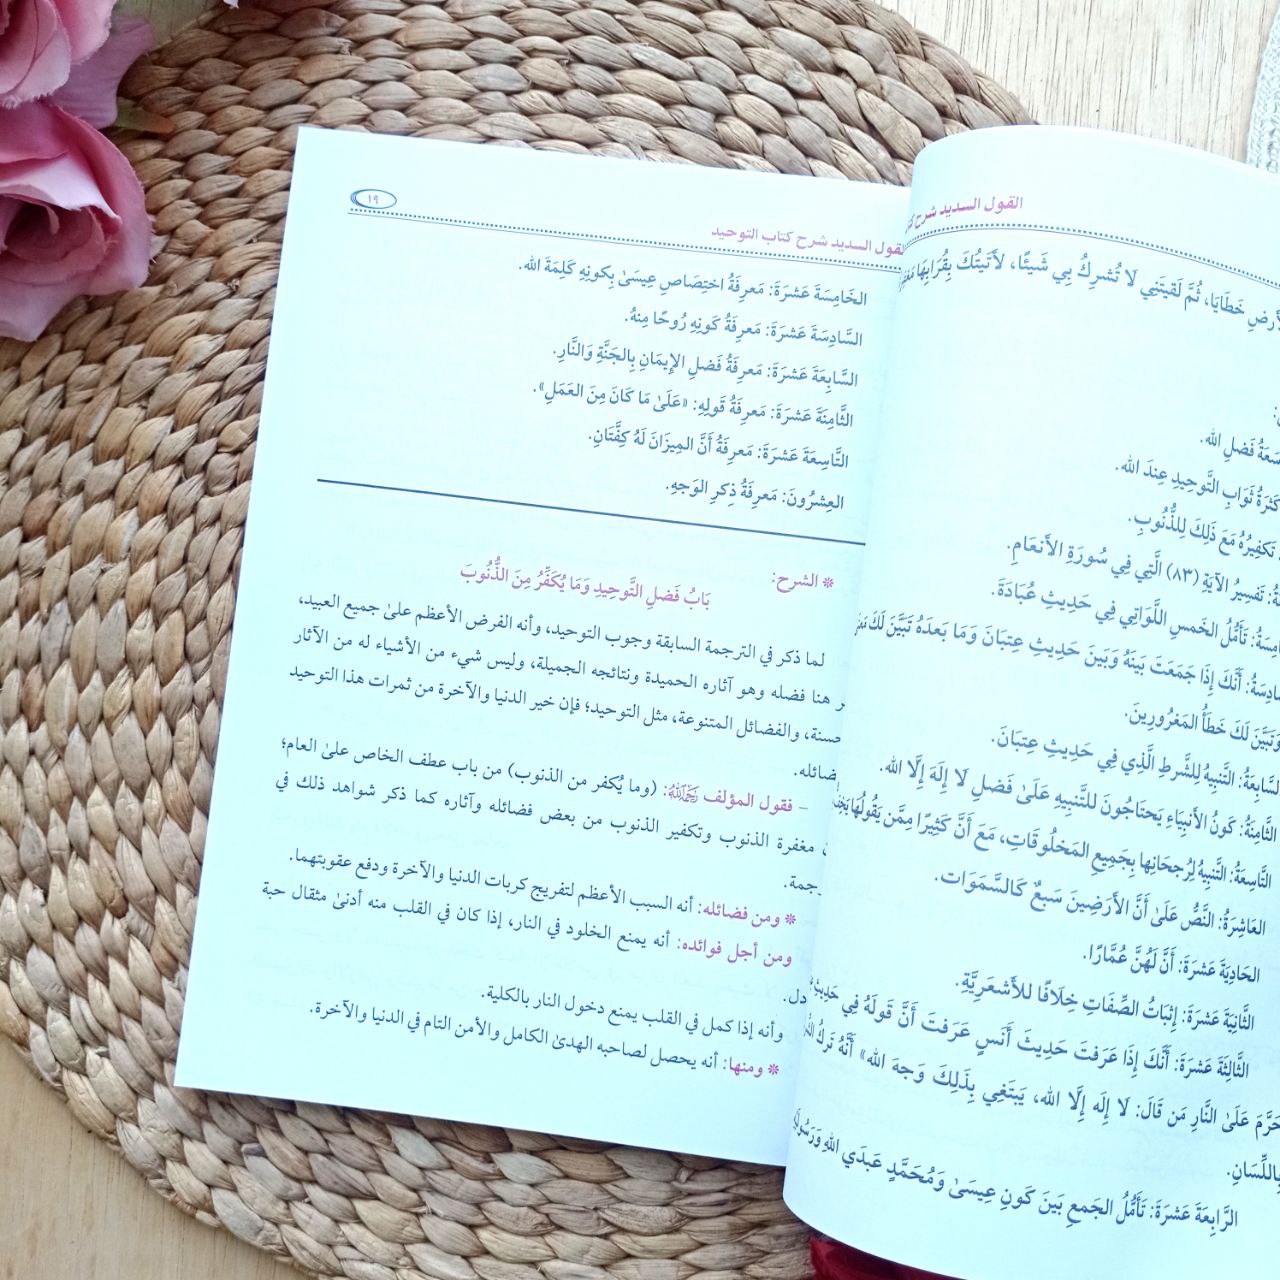 القول السديد شرح
لأرضِ خَطَايَا، ثُمَّ لَقيتَنِي لَا تُشركُ بِي شَيئًا، لَأَتَيتُكَ بِقُرَابِهَا
سَعَةُ فَضلِ الله.
كَثرَةُ ثَوَابِ التَّوحِيدِ عِندَ الله.
تَكفِيرُهُ مَعَ ذَلِكَ لِلذُّنُوبِ.
تَفسِيرُ الآيَةِ (٨٣) الَّتِي فِي سُورَةِ الأَنعَامِ.
تَأَمُّلُ الخَمسِ اللَّوَاتِي فِي حَدِيثِ عُبَادَةَ.
أَنَّكَ إِذَا جَمَعتَ بَينَهُ وَبَينَ حَدِيثِ عِتبَانَ وَمَا بَعدَهُ تَبَيَّنَ لَكَ
وَتَبَيَّنَ لَكَ خَطَأُ المَغرُورِينَ.
السَّابِعَةُ: التَّنبِيهُ لِلشَّرطِ الَّذِي فِي حَدِيثِ عِتبَانَ.
الثَّامِنَةُ: كَونُ الأَنبِيَاءِ يَحتَاجُونَ للتَّنبِيهِ عَلَىٰ فَضلِ لَا إِلَهَ إِلَّا الله.
التَّاسِعَةُ: التَّنبِيهُ لِرُجحَانِها بِجَمِيعِ المَخلُوقَاتِ، مَعَ أَنَّ كَثِيرًا مِمَّن يَقُولُهَا
العَاشِرَةُ: النَّصُّ عَلَىٰ أَنَّ الأَرَضِينَ سَبعٌ كَالسَّمَوَات.
الحَادِيَةَ عَشرَةَ: أَنَّ لَهُنَّ عُمَّارًا.
الثَّانِيَةَ عَشرَةَ: إِثبَاتُ الصِّفَاتِ خِلَافًا للأَشعَرِيَّةِ.
الثَّالِثَةَ عَشرَةَ: أَنَّكَ إِذَا عَرَفتَ حَدِيثَ أَنَسٍ عَرَفتَ أَنَّ قَولَهُ فِي حَدِيثِ
حَرَّمَ عَلَىٰ النَّارِ مَن قَالَ: لَا إِلَه إِلَّا الله، يَبتَغِي بِذَلِكَ وَجهَ الله» أَنَّهُ تَركُ
بِاللِّسَانِ.
الرَّابِعَةَ عَشرَةَ: تَأَمُّلُ الجَمعِ بَينَ كَونِ عِيسَىٰ وَمُحَمَّدٍ عَبدَي اللهِ
١٩
القول السديد شرح كتاب التوحيد
الخَامِسَةَ عَشرَةَ: مَعرِفَةُ اختِصَاصِ عِيسَىٰ بِكَونِهِ كَلِمَةَ الله.
السَّادِسَةَ عَشرَةَ: مَعرِفَةُ كَونِهِ رُوحًا مِنهُ.
السَّابِعَةَ عَشرَةَ: مَعرِفَةُ فَضلِ الإِيمَانِ بِالجَنَّةِ وَالنَّارِ.
الثَّامِنَةَ عَشرَةَ: مَعرِفَةُ قَولِهِ: «عَلَىٰ مَا كَانَ مِنَ العَمَلِ».
التَّاسِعَةَ عَشرَةَ: مَعرِفَةُ أَنَّ المِيزَانَ لَهُ كِفَّتَانِ.
العِشرُونَ: مَعرِفَةُ ذِكرِ الوَجهِ.
❊ الشرح:
بَابُ فَضلِ التَّوحِيدِ وَمَا يُكَفِّرُ مِنَ الذُّنُوبَ
لما ذكر في الترجمة السابقة وجوب التوحيد، وأنه الفرض الأعظم علىٰ جميع العبيد،
هنا فضله وهو آثاره الحميدة ونتائجه الجميلة، وليس شيء من الأشياء له من الآثار
والفضائل المتنوعة، مثل التوحيد؛ فإن خير الدنيا والآخرة من ثمرات هذا التوحيد
– فقول المؤلف رَحِمَهُ اللَّهُ: (وما يُكفر من الذنوب) من باب عطف الخاص علىٰ العام؛
مغفرة الذنوب وتكفير الذنوب من بعض فضائله وآثاره كما ذكر شواهد ذلك في
❊ ومن فضائله: أنه السبب الأعظم لتفريج كربات الدنيا والآخرة ودفع عقوبتهما.
ومن أجل فوائده: أنه يمنع الخلود في النار، إذا كان في القلب منه أدنىٰ مثقال حبة
وأنه إذا كمل في القلب يمنع دخول النار بالكلية.
❊ ومنها: أنه يحصل لصاحبه الهدىٰ الكامل والأمن التام في الدنيا والآخرة.